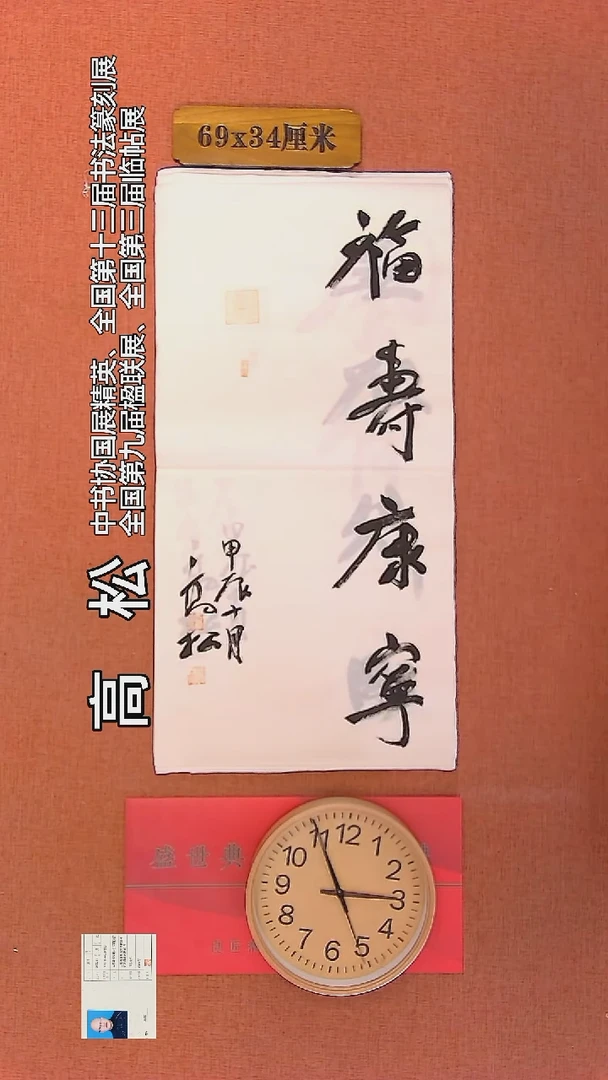 69x34厘米
中书协国展精英、全国第十三届书法篆刻展
全国第九届楹联展、全国第三届临帖展
高 松
福寿康寧
甲辰十月
高松
盛世典
12
1
2
3
4
5
6
7
8
9
10
11